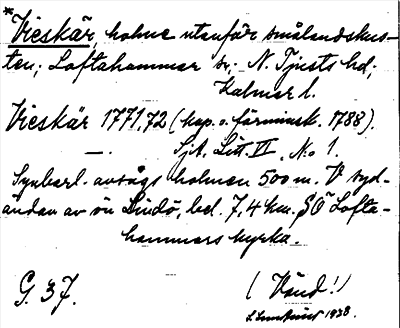 *Vieskär, holme utanför smålandskus-
ten; Loftahammar sn; N. Tjusts hd;
Kalmar l.
Vieskär 1771,72 (kop. o. förminsk. 1788).
—. Sjk. Litt. VI, No 1.
Synbarl. avsågs holmen 500 m. V syd-
ändan av ön Lindö, bel. 7,4 km. SÖ Lofta-
hammars kyrka.
G. 37.
(Vänd!)
1938.